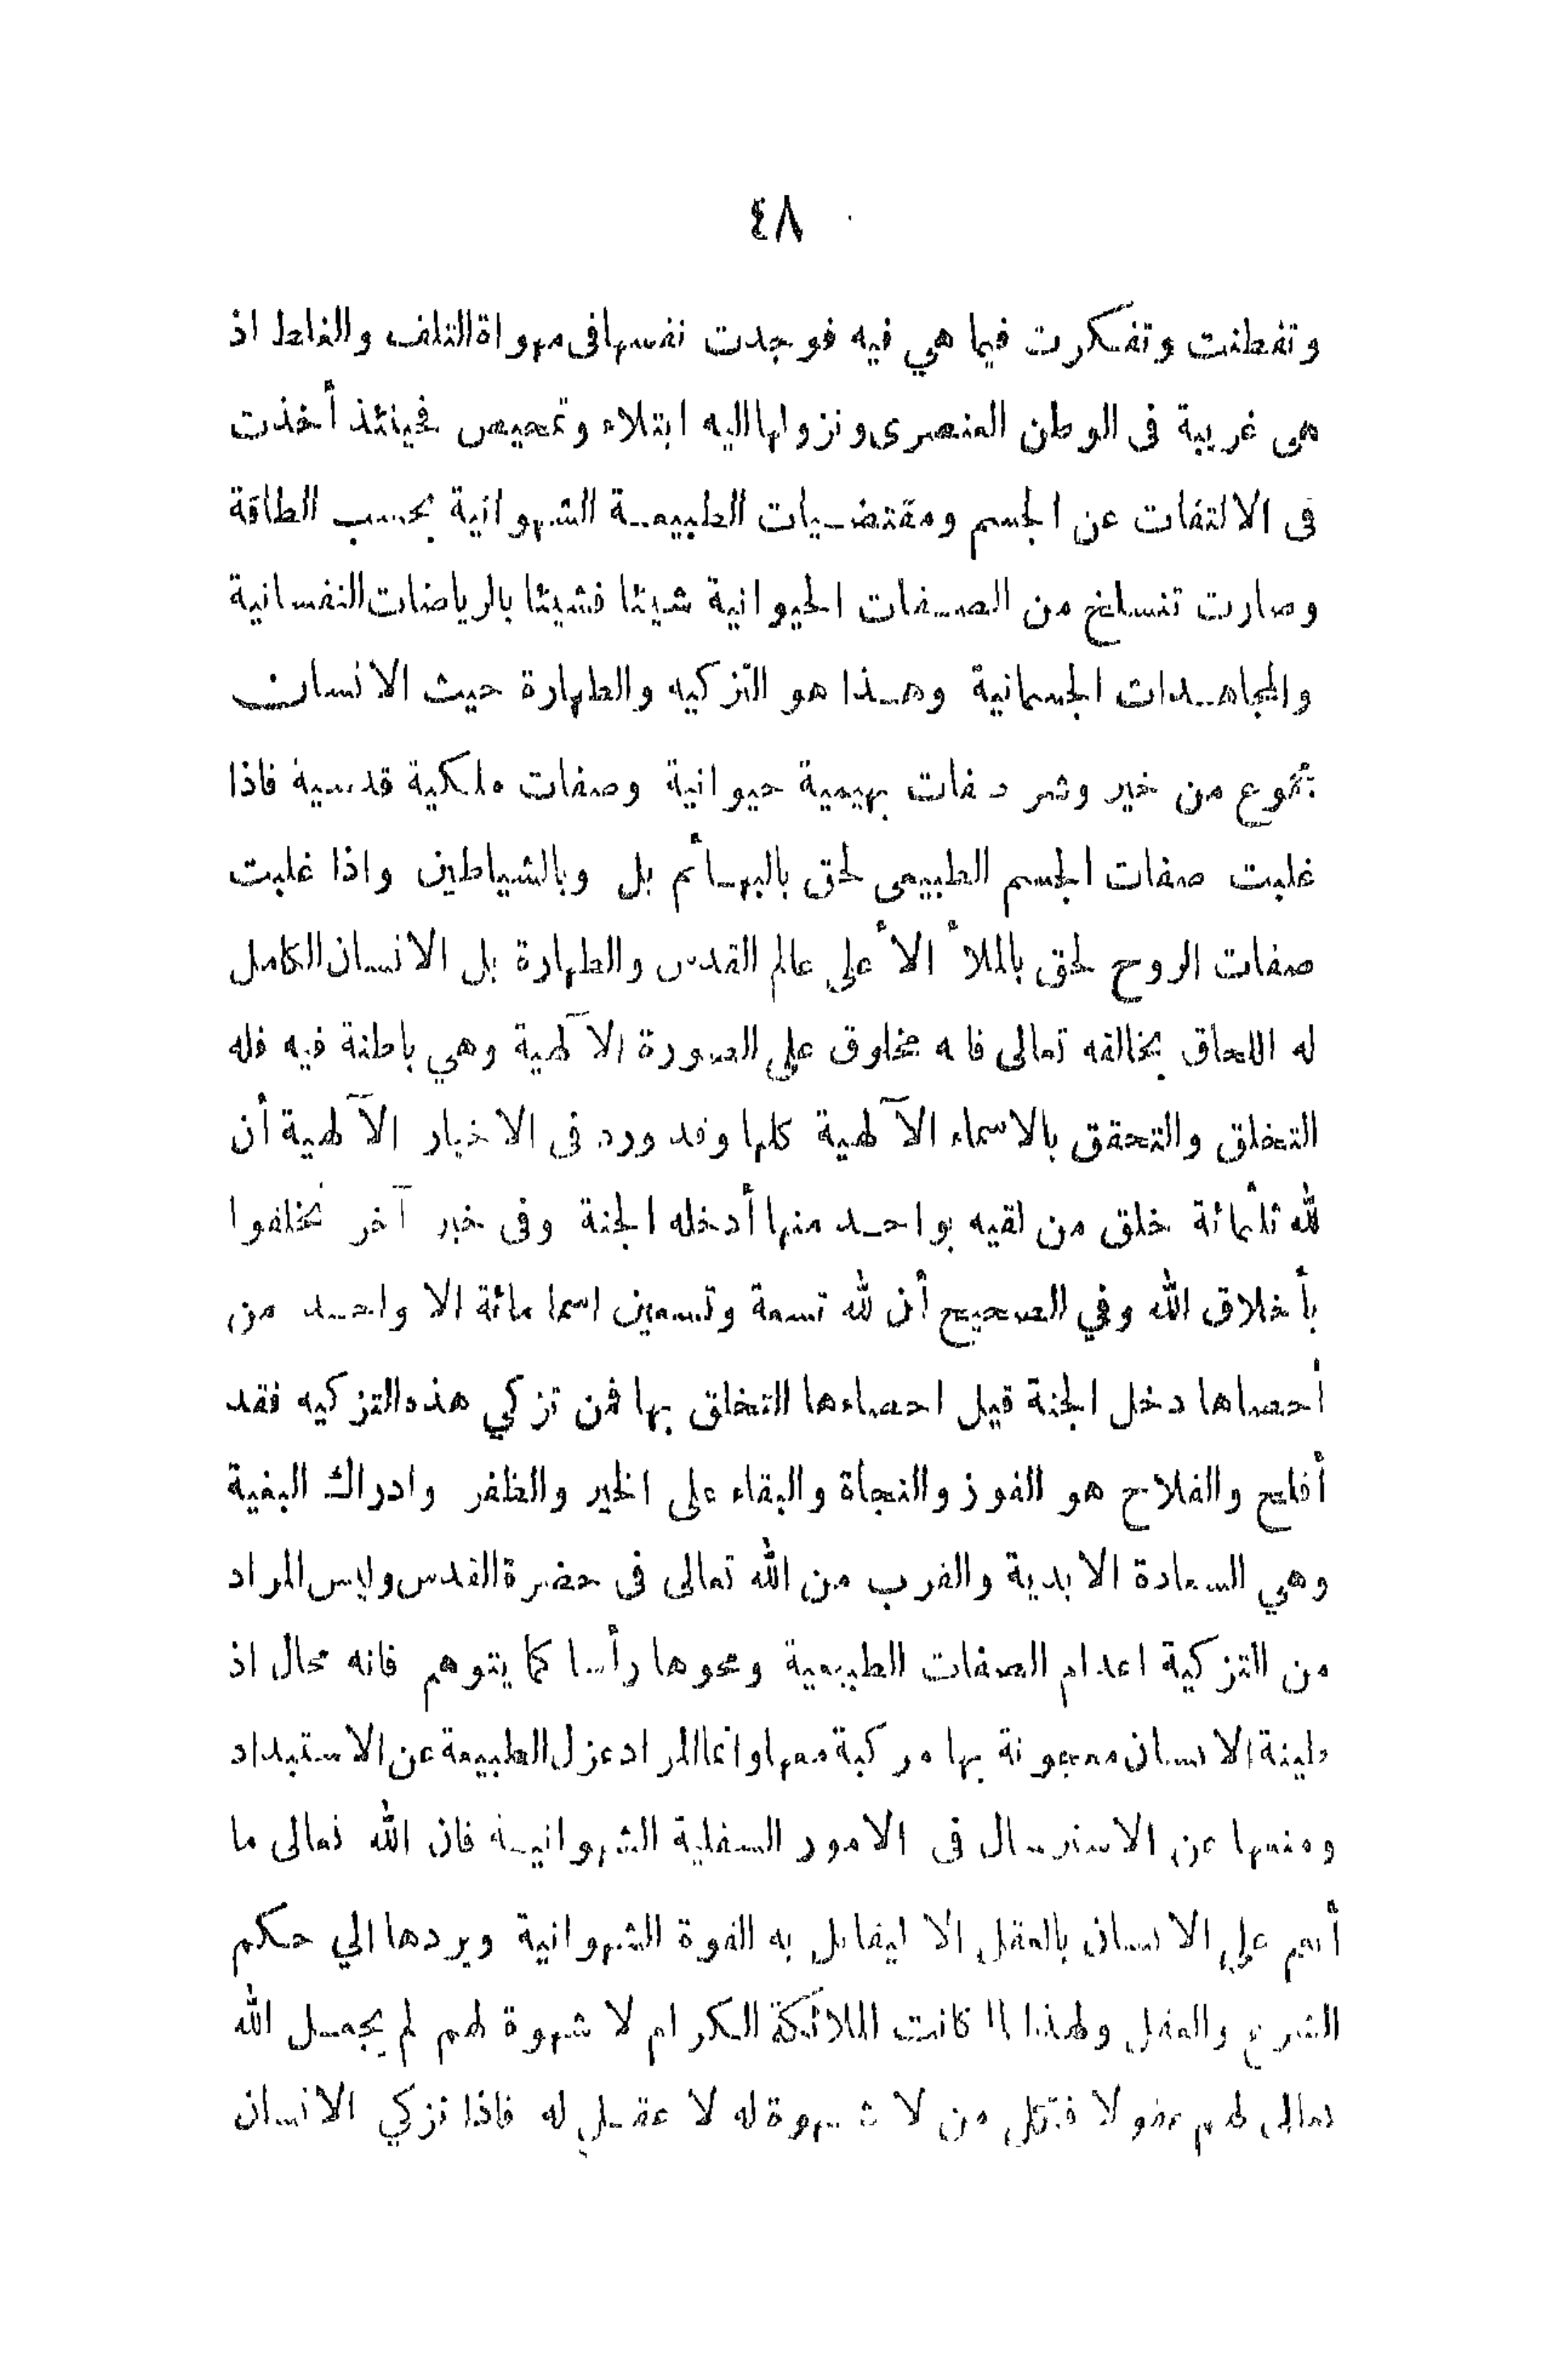 ٤٨
وتفطنت وتفكرت فيما هي فيه فوجدت نفسها فى مهواة التلف والغلط اذ
هى غريبة فى الوطن العنصرى ونزولها اليه ابتلاء وتمحيص فحينئذ أخذت
فى الالتفات عن الجسم ومقتضيات الطبيعة الشهوانية بحسب الطاقة
وصارت تنسلخ من الصفات الحيوانية شيئا فشيئا بالرياضات النفسانية
والمجاهدات الجسمانية وهذا هو التزكيه والطهارة حيث الانسان
مجموع من خير وشر صفات بهيمية حيوانية وصفات ملكية قدسية فاذا
غلبت صفات الجسم الطبيعى لحق بالبهائم بل وبالشياطين واذا غلبت
صفات الروح لحق بالملأ الأعلى عالم القدس والطهارة بل الانسان الكامل
له اللحاق بخالقه تعالى فانه مخلوق على الصورة الآلهية وهي باطنة فيه فله
التخلق والتحقق بالاسماء الآلهية كلها وقد ورد فى الاخبار الآلهية أن
لله ثلثمائة خلق من لقيه بواحد منها أدخله الجنة وفى خبر آخر تخلقوا
بأخلاق الله وفي الصحيح أن لله تسعة وتسعين اسما مائة الا واحد من
أحصاها دخل الجنة قيل احصاءها التخلق بها فمن تزكي هذه التزكيه فقد
أفلح والفلاح هو الفوز والنجاة والبقاء على الخير والظفر وادراك البغية
وهي السعادة الابدية والقرب من الله تعالى فى حضرة القدس وليس المراد
من التزكية اعدام الصفات الطبيعية ومحوها رأسا كما يتوهم فانه محال اذ
طينة الانسان معجونة بها مركبة معها وانما المراد عزل الطبيعة عن الاستبداد
ومنعها عن الاسترسال فى الامور السفلية الشهوانية فان الله تعالى ما
أنعم على الانسان بالعقل الا ليقابل به القوة الشهوانية ويردها الي حكم
الشرع والعقل ولهذا لما كانت الملائكة الكرام لا شهوة لهم لم يجعل الله
تعالى لهم عقولا فكل من لا شهوة له لا عقل له فاذا تزكي الانسان